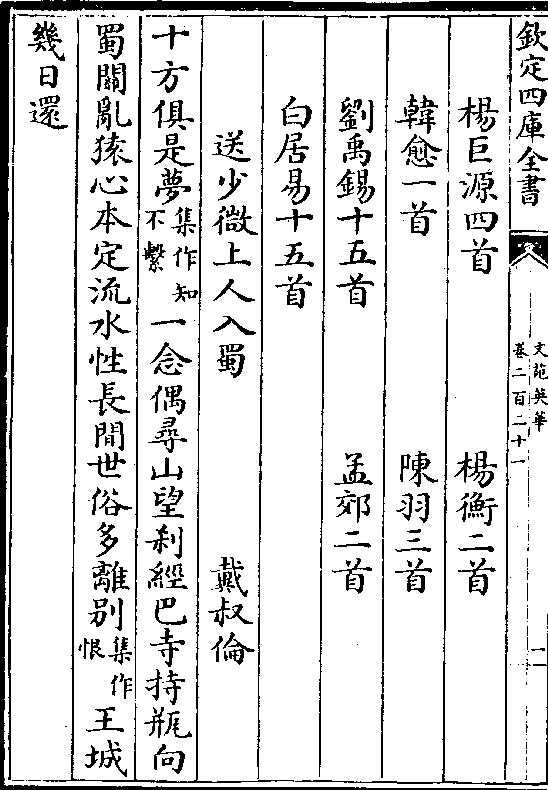 欽定四庫全書
文苑英華
卷二百二十一
二
楊巨源四首　楊衡二首
韓愈一首　陳羽三首
劉禹錫十五首　孟郊二首
白居易十五首
送少微上人入蜀　戴叔倫
十方俱是夢集作知不繫一念偶尋山望刹經巴寺持瓶向
蜀關亂猿心本定流水性長閒世俗多離别集作恨王城
幾日還